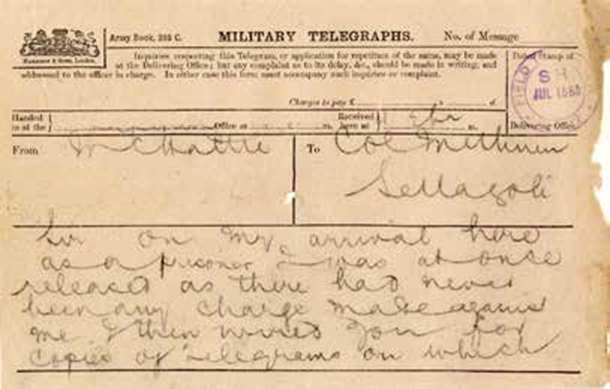 Army Book, 288 C.
MILITARY TELEGRAPHS.
No. of Message
Inquiries respecting this Telegram, or application for repetition of the same, may be made
at the Delivering Office; but any complaint as to its delay, &c., should be made in writing, and
addressed to the officer in charge. In either case this form must accompany such inquiries or complaint.
Dated Stamp of
FIELD
SH
JUL 1885
Charges to pay £ s. d.
Handed
in at the
Office at
Received
here at
Delivering Office
From McHattie
To Col Methuen
Sellagoli
Sir on my arrival here
as a prisoner I was at once
released as there had never
been any charge made against
me I then wired you for
Copies of telegrams on which